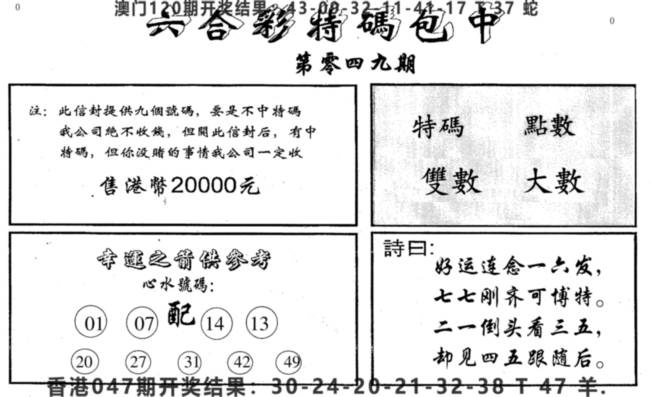 0
澳门120期开奖结果:43-09-32-11-41-17 T 37 蛇
0
六合彩特碼包中
第零四九期
注：此信封提供九個號碼，要是不中特碼
我公司绝不收錢，但開此信封后，有中
特碼，但你没賭的事情我公司一定收
售港幣20000元
特碼 點數
雙數 大數
幸運之箭供参考
心水號碼:
01 07 配 14 13
20 27 31 42 49
詩曰:
好运连念一六发，
七七刚齐可博特。
二一倒头看三五，
却见四五跟随后。
香港047期开奖结果：30-24-20-21-32-38 T 47 羊.